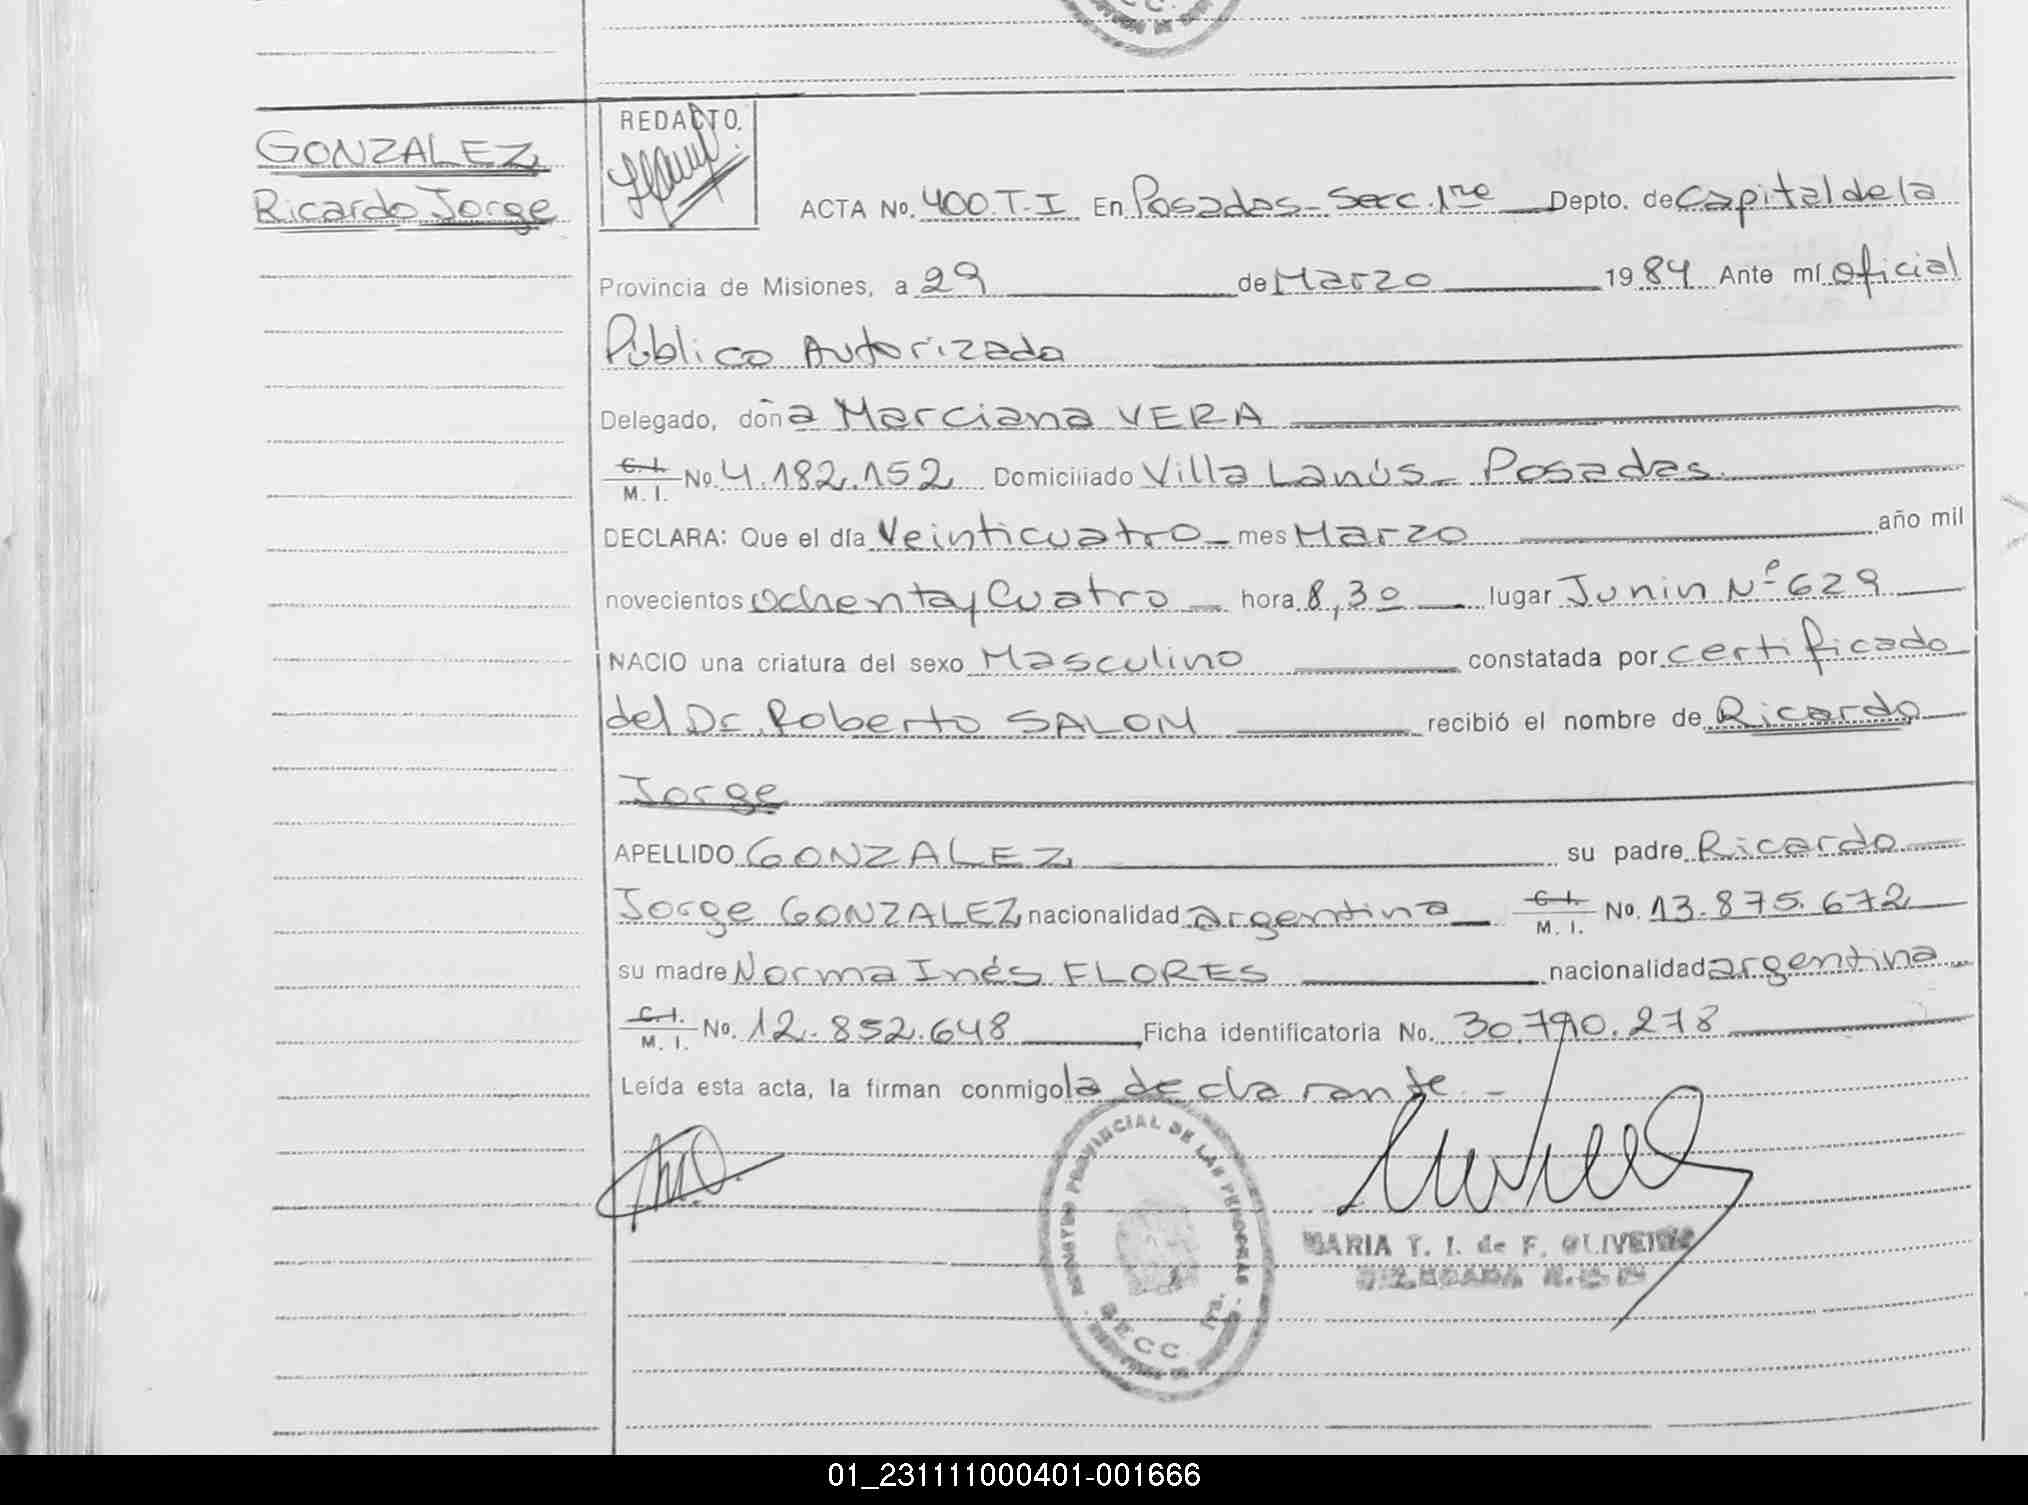 GONZALEZ
Ricardo Jorge
REDACTO.
ACTA No. 400 T-I En Posadas - Secc. 1ra Depto. de Capital de la
Provincia de Misiones, a 29 de Marzo 1984 Ante mí Oficial
Público Autorizado
Delegado, doña Marciana VERA
C. I. / M. I. No. 4.182.152 Domiciliado Villa Lanús - Posadas.
DECLARA: Que el día Veinticuatro - mes Marzo año mil
novecientos Ochenta y Cuatro - hora 8,30 lugar Junin Nº 629
NACIO una criatura del sexo Masculino constatada por certificado
del Dr. Roberto SALOM recibió el nombre de Ricardo
Jorge
APELLIDO GONZALEZ su padre Ricardo
Jorge GONZALEZ nacionalidad argentina C. I. / M. I. No. 13.875.672
su madre Norma Inés FLORES nacionalidad argentina
C. I. / M. I. No. 12.852.648 Ficha identificatoria No. 30.790.278
Leída esta acta, la firman conmigo la declarante. -
REGISTRO PROVINCIAL DE LAS PERSONAS
SECC. 1ra.
MARIA T. I. de F. OLIVEIRA
01_231111000401-001666